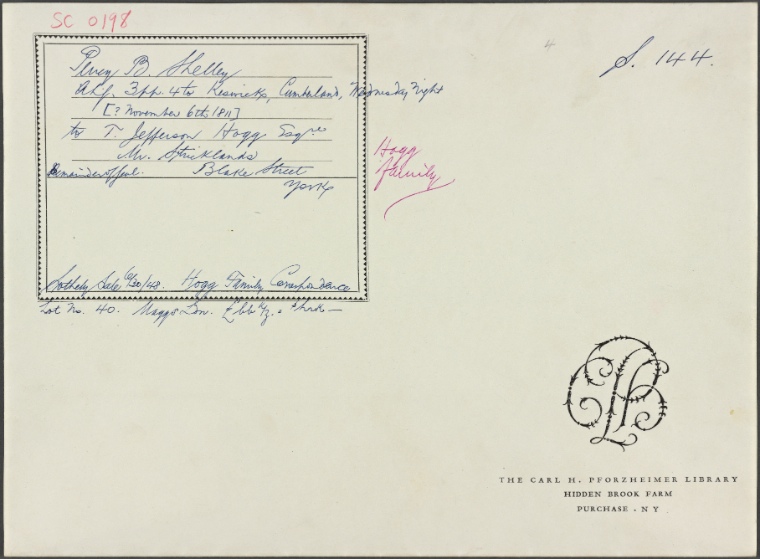 SC 0198
4
S. 144.
Percy B. Shelley
4to Keswick, Cumberland, Wednesday Night
[? November 6th, 1811]
to T. Jefferson Hogg Esqre
Mr. Stricklands
Remainder of seal. Blake Street
York
Hogg
Family
Sotheby Sale 6/30/48. Hogg Family Correspondence
Lot No. 40. Maggs Lon.
THE CARL H. PFORZHEIMER LIBRARY
HIDDEN BROOK FARM
PURCHASE . NY